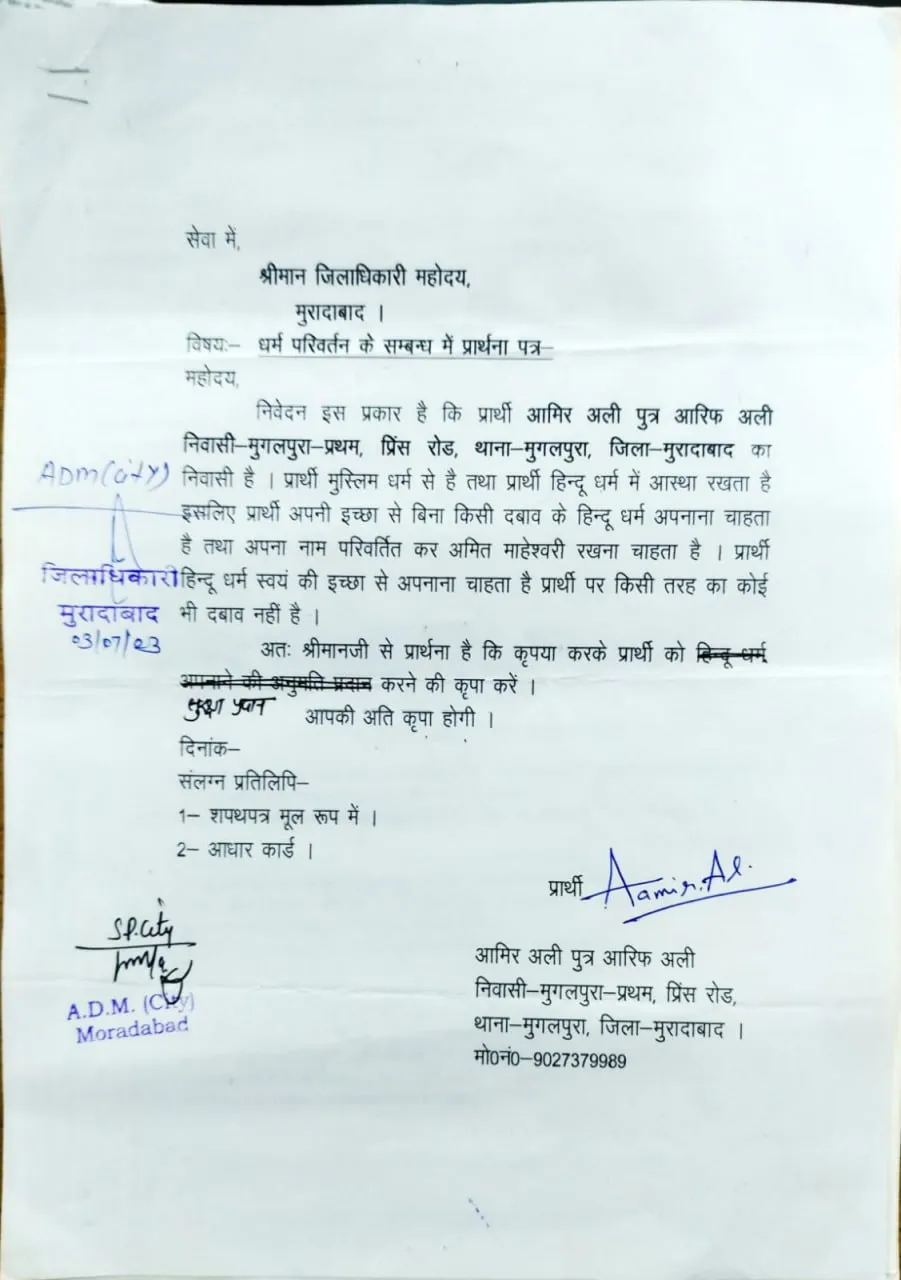 सेवा में,
श्रीमान जिलाधिकारी महोदय,
मुरादाबाद ।
विषयः– धर्म परिवर्तन के सम्बन्ध में प्रार्थना पत्र–
महोदय,
निवेदन इस प्रकार है कि प्रार्थी आमिर अली पुत्र आरिफ अली
निवासी–मुगलपुरा–प्रथम, प्रिंस रोड, थाना–मुगलपुरा, जिला–मुरादाबाद का
ADM(City)
निवासी है । प्रार्थी मुस्लिम धर्म से है तथा प्रार्थी हिन्दू धर्म में आस्था रखता है
इसलिए प्रार्थी अपनी इच्छा से बिना किसी दबाव के हिन्दू धर्म अपनाना चाहता
है तथा अपना नाम परिवर्तित कर अमित माहेश्वरी रखना चाहता है । प्रार्थी
जिलाधिकारी
हिन्दू धर्म स्वयं की इच्छा से अपनाना चाहता है प्रार्थी पर किसी तरह का कोई
मुरादाबाद
भी दबाव नहीं है ।
03/07/23
अतः श्रीमानजी से प्रार्थना है कि कृपया करके प्रार्थी को हिन्दू धर्म
अपनाने की अनुमति प्रदान करने की कृपा करें ।
सुरक्षा प्रदान
आपकी अति कृपा होगी ।
दिनांक–
संलग्न प्रतिलिपि–
1– शपथपत्र मूल रूप में ।
2– आधार कार्ड ।
प्रार्थी Aamir. Al.
S.P. City
A.D.M. (City)
Moradabad
आमिर अली पुत्र आरिफ अली
निवासी–मुगलपुरा–प्रथम, प्रिंस रोड,
थाना–मुगलपुरा, जिला–मुरादाबाद ।
मो0नं0–9027379989